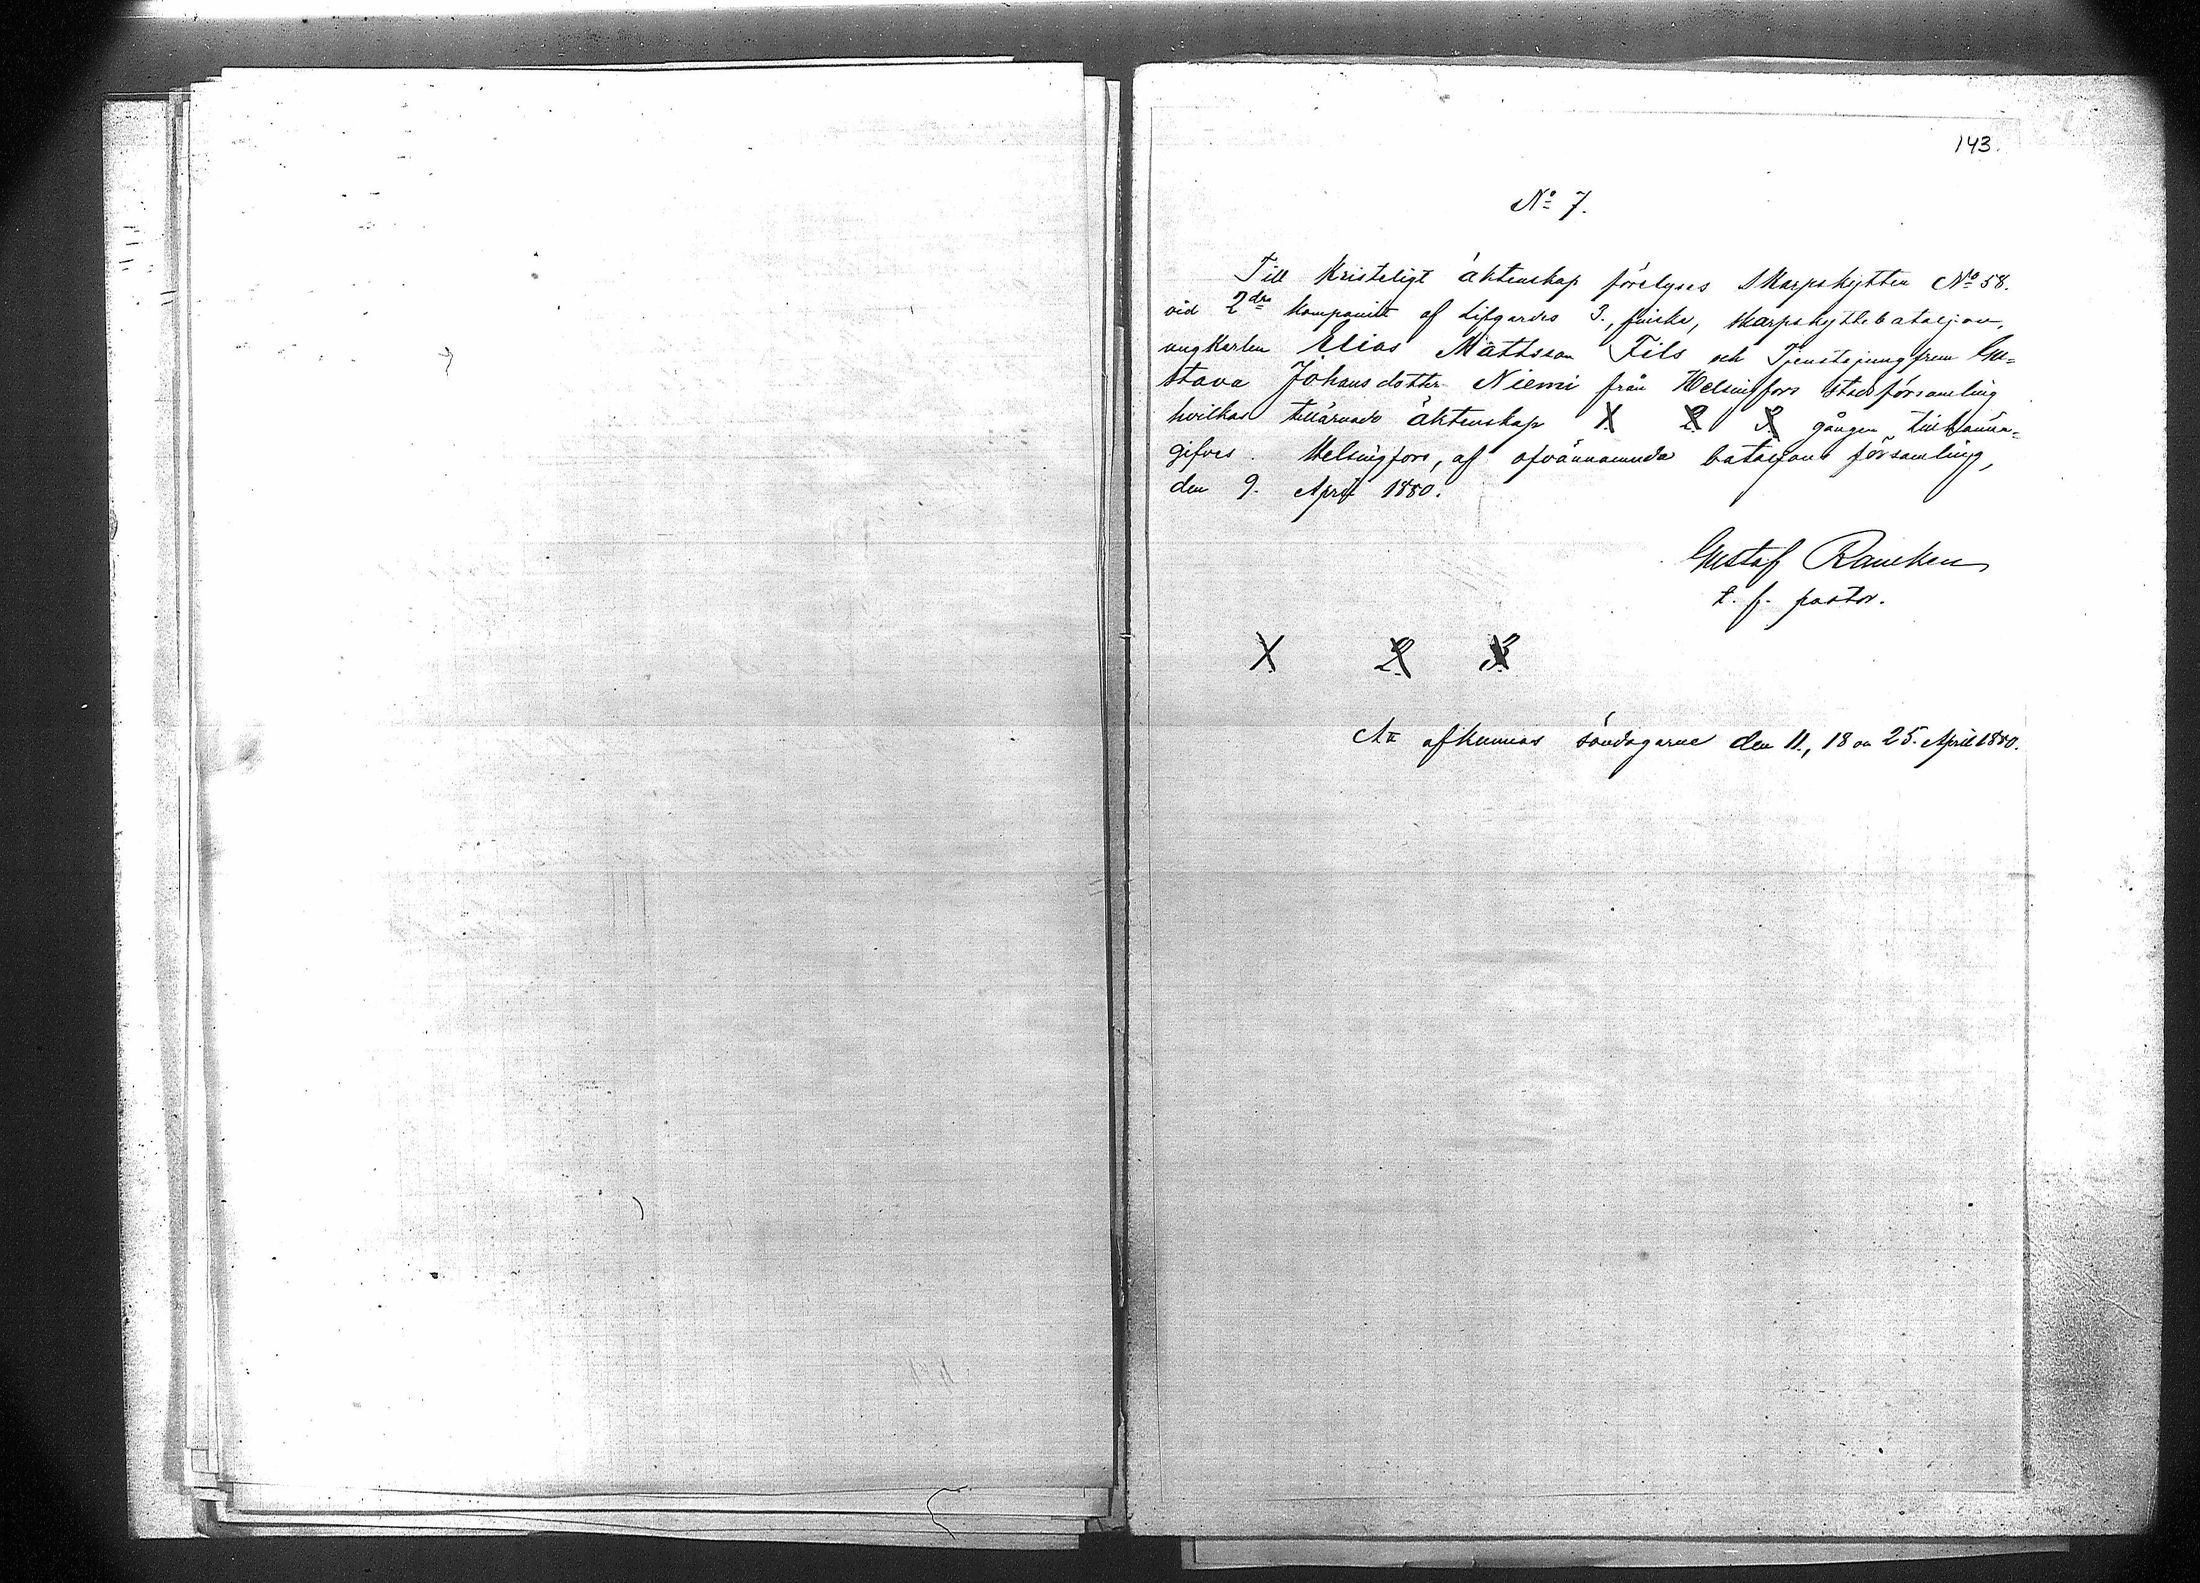 143.
No 7.
Till kristeligt äktenskap förelyses Skarpskytten No 58.
vid 2dra kompaniet af Lifgardes 3., finska, skarpskyttebataljon,
ungkarlen Elias Mattsson Fils och Tjenstejungfrun Gu=
stava Johansdotter Niemi från Helsingfors stadsförsamling
hvilkas tillärnade äktenskap 1. 2. 3. gången tillkänna=
gifves. Helsingfors, af ofvannämnda bataljons församling,
den 9. April 1880.
Gustaf Rancken
t. f. pastor.
1. 2. 3.
afkunnas söndagarne den 11., 18 25. April 1880.